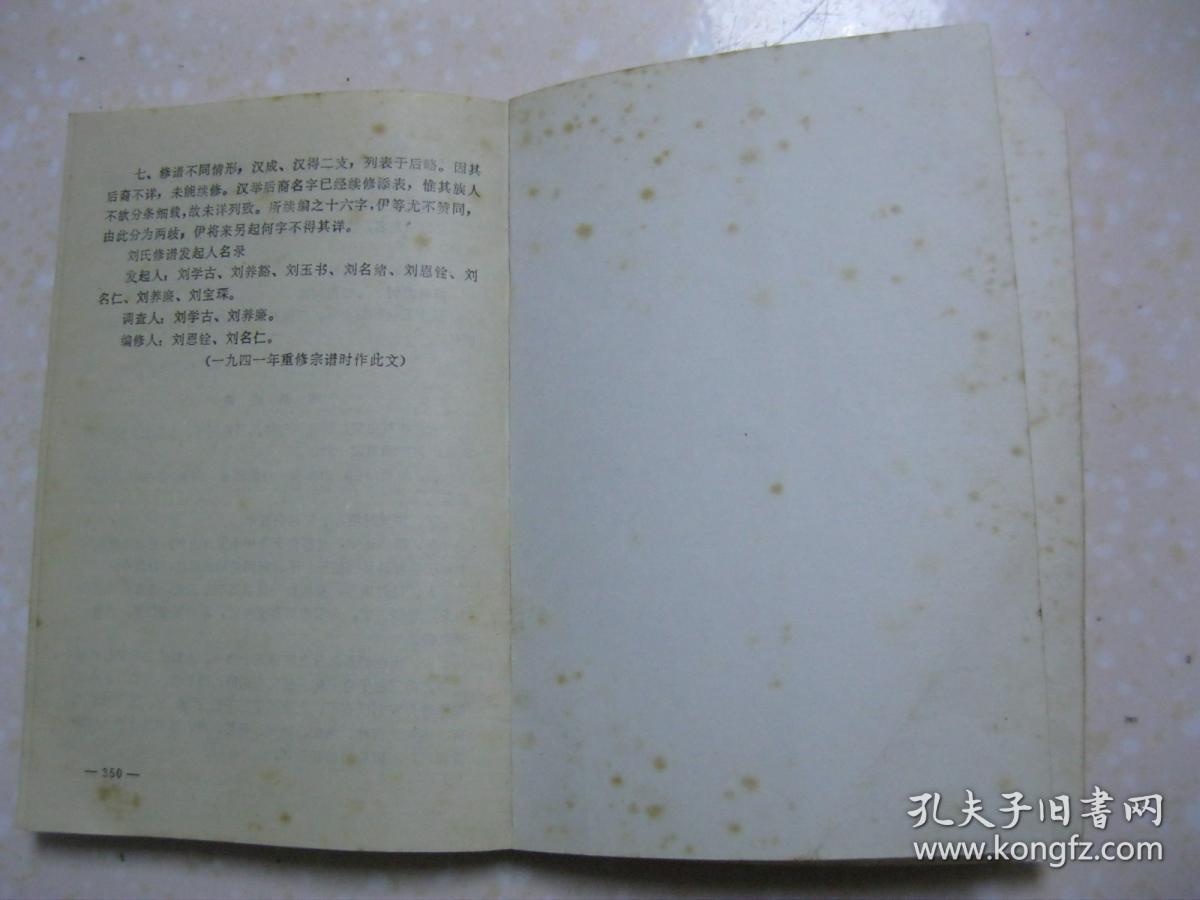 七、修谱不同情形，汉成、汉得二支，列表于后略。因其
后裔不详，未能续修。汉举后裔名字已经续修添表，惟其族人
不欲分条细载，故未详列致。所续编之十六字，伊等尤不赞同，
由此分为两歧，伊将来另起何字不得其详。
刘氏修谱发起人名录
发起人：刘学古、刘养豁、刘玉书、刘名绪、刘恩铨、刘
名仁、刘养廉、刘宝琛。
调查人：刘学古、刘养廉。
编修人：刘恩铨、刘名仁。
（一九四一年重修宗谱时作此文）
— 350 —
孔夫子旧書网
www.kongfz.com